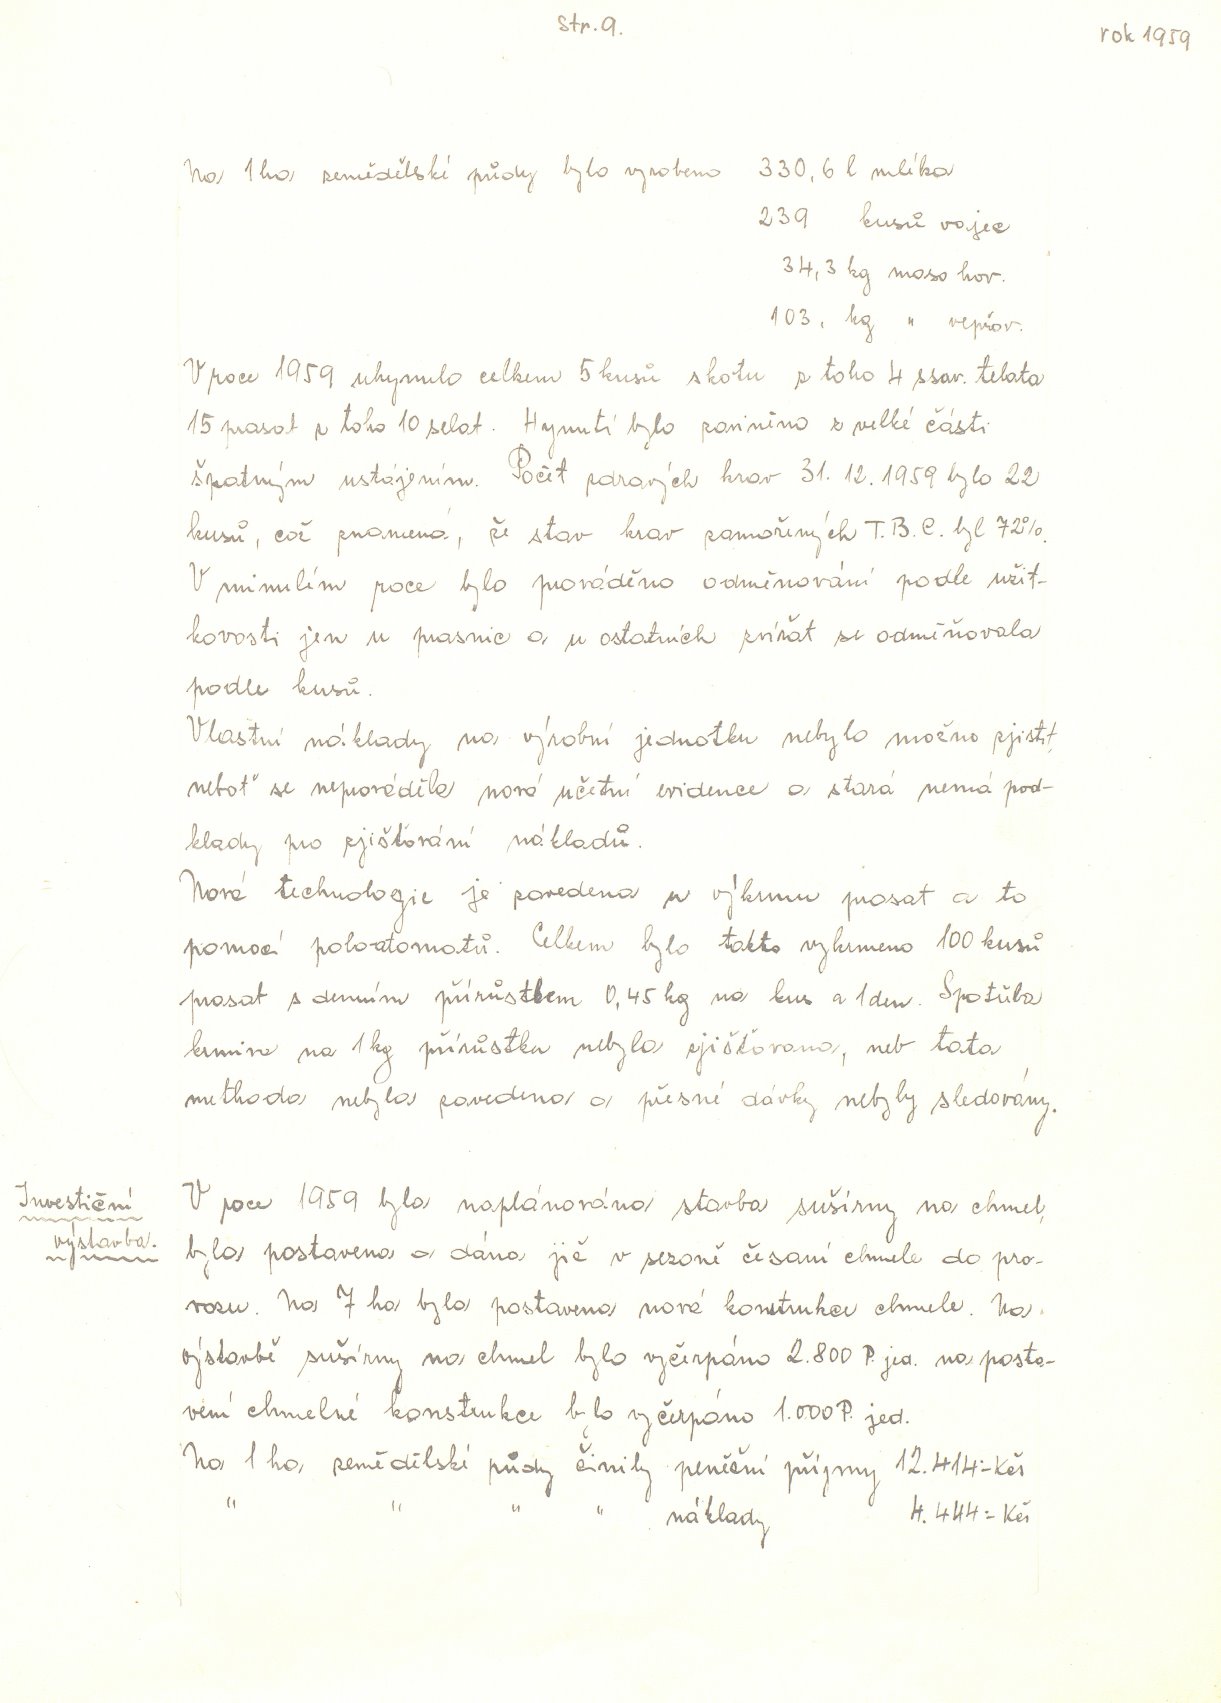 Str. 9.
rok 1959
Na 1 ha zemědělské půdy bylo vyrobeno 330,6 l mléka
239 kusů vajec
34,3 kg maso hov.
103, kg " vepřov.
V roce 1959 uhynulo celkem 5 kusů skotu z toho 4 ssav. telata
15 prasat z toho 10 selat. Hynutí bylo zaviněno z velké části
špatným ustájením. Počet zdravých krav 31. 12. 1959 bylo 22
kusů, což znamená, že stav krav zamořených T.B.C. byl 72%.
V minulém roce bylo prováděno odměnování podle užit-
kovosti jen u prasnic a u ostatních zvířat se odměňovala
podle kusů.
Vlastní náklady na výrobní jednotku nebylo možno zjistit,
neboť se neprováděla nová učetní evidence a stará nemá pod-
klady pro zjišťování nákladů.
Nová technologie je zavedena u výkrmu prasat a to
pomocí poloatomatů. Celkem bylo takto vykrmeno 100 kusů
prasat s denním přírůstkem 0,45 kg na kus a 1 den. Spotřeba
krmiva na 1 kg přírůstku nebyla zjišťovana, neb tato
methoda nebyla zavedena a přesné dávky nebyly sledovány.
Investiční
výstavba.
V roce 1959 byla naplánována stavba sušírny na chmel,
byla postavena a dána již v sezoně česaní chmele do pro-
vozu. Na 7 ha byla postavena nová konstrukce chmele. Na
výstavbě sušírny na chmel bylo vyčerpáno 2.800 P. jed. na posta-
vení chmelné konstrukce bylo vyčerpáno 1.000 P. jed.
Na 1 ha zemědělské půdy činily peněžní příjmy 12.414:- Kčs
" " " " náklady 4.444:- Kčs